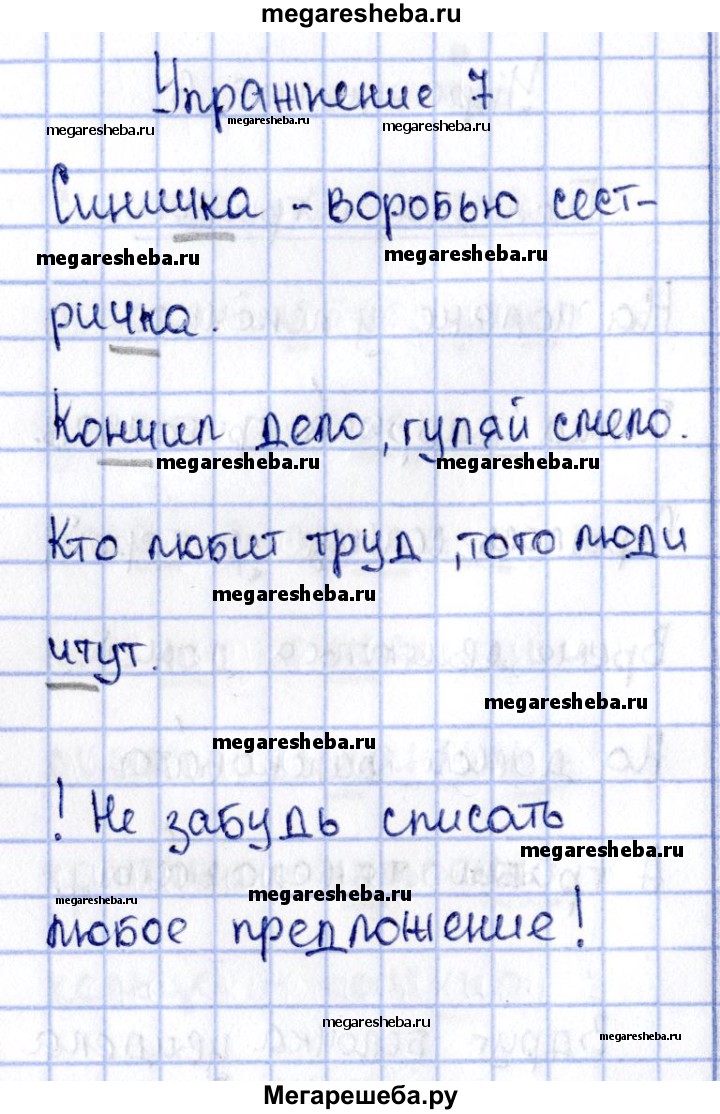 megaresheba.ru
Упражнение 7
megaresheba.ru megaresheba.ru megaresheba.ru
Синичка - воробью сест-
megaresheba.ru megaresheba.ru
ричка.
Кончил дело, гуляй смело.
megaresheba.ru megaresheba.ru
Кто любит труд, того люди
megaresheba.ru
чтут.
megaresheba.ru
megaresheba.ru
! Не забудь списать
megaresheba.ru
megaresheba.ru megaresheba.ru
любое предложение!
megaresheba.ru megaresheba.ru
Мегарешеба.ру